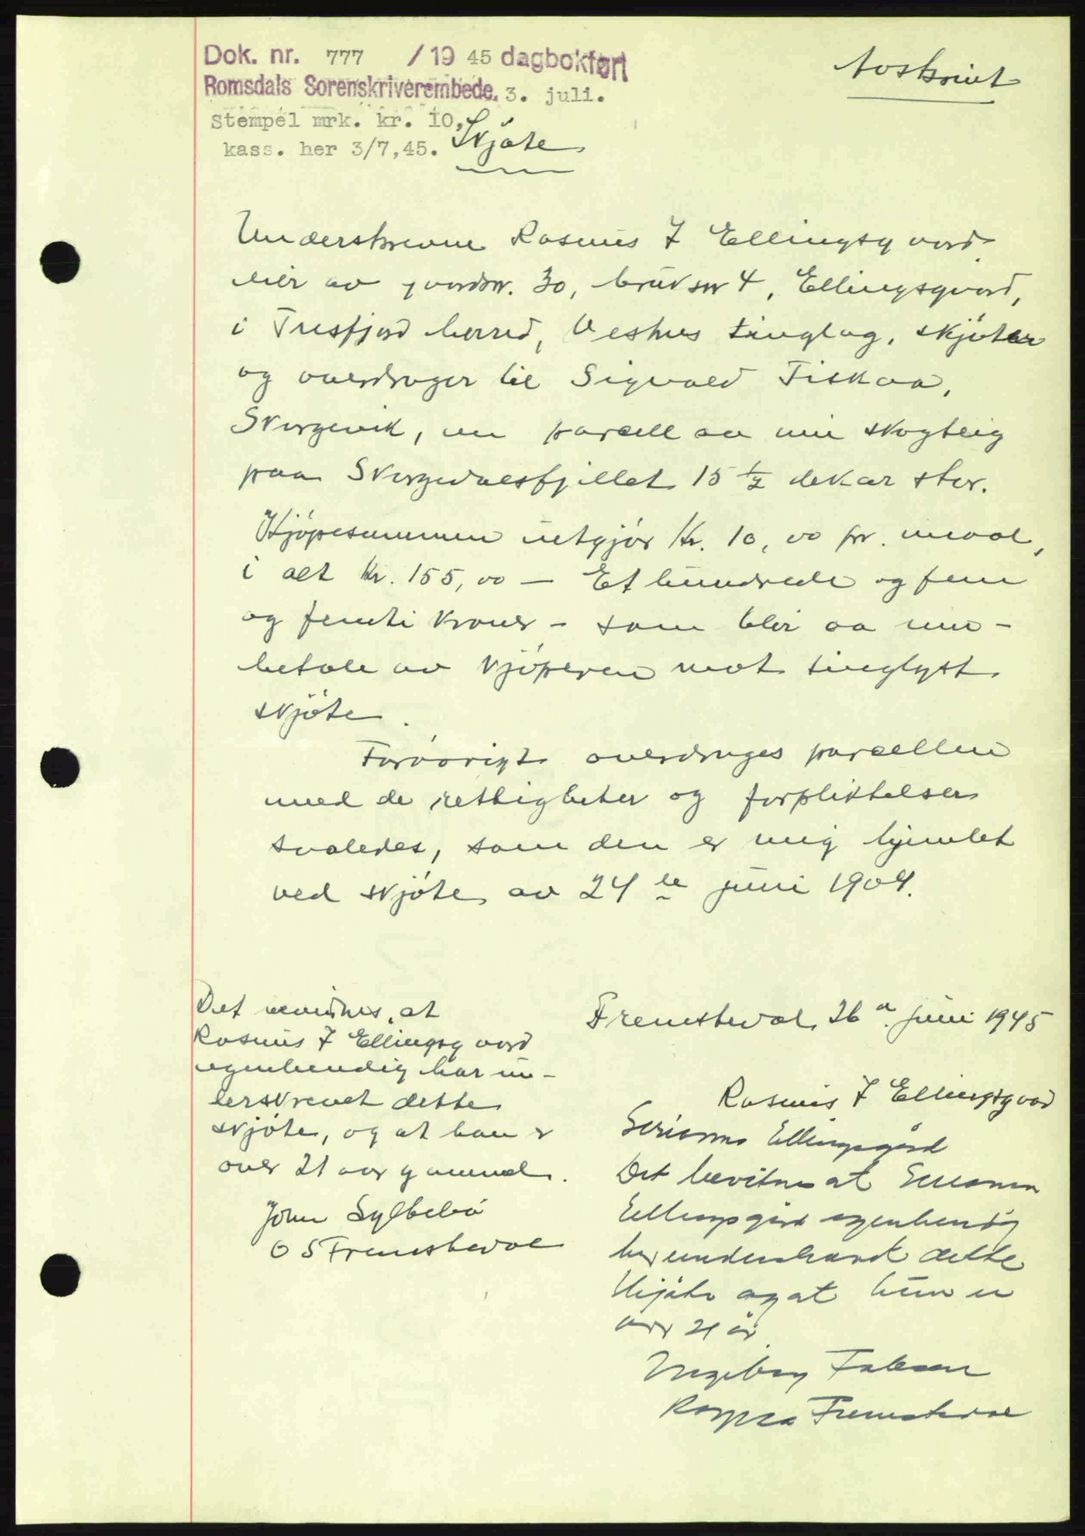 Dok. nr. 777 /19 45 dagbokført
Romsdals Sorenskriverembede. 3. juli.
stempel mrk. kr. 10,
kass. her 3/7,45.
Avskrivt
Skjøte
Underskrevne Rasmus J Ellingsgaard
eier av gaardsnr. 30, bruksnr 4, Ellingsgaard,
i Tresfjord herred, Vestnes tinglag, skjøter
og overdrager til Sigvald Fiskaa,
Skorgevik, en parcell av min skogteig
paa Skorgedalsfjellet 15 ½ dekar stor.
Kjøpesummen utgjør Kr. 10,00 pr. maal,
i alt kr. 155,00 — Et hundrede og fem
og femti kroner – som blir aa inn-
betale av kjøperen mot tinglyst
skjøte.
Forøvrigt overdrages parcellen
med de rettigheter og forpliktelser
saaledes, som den er mig hjemlet
ved skjøte av 24 de juni 1904.
Det vidnes, at
Rasmus J Ellingsgaard
egenhendig har un-
derskrevet dette
skjøte, og at han er
over 21 aar gammel.
John Syltebø
O S Fremstedal
Fremstedal 26 de juni 1945
Rasmus J Ellingsgaard
Ellingsgård
Det bevitnes at
Ellingsgård egenhendig
har underskrevet dette
skjøte og at hun er
over 21 år
Fremstedal